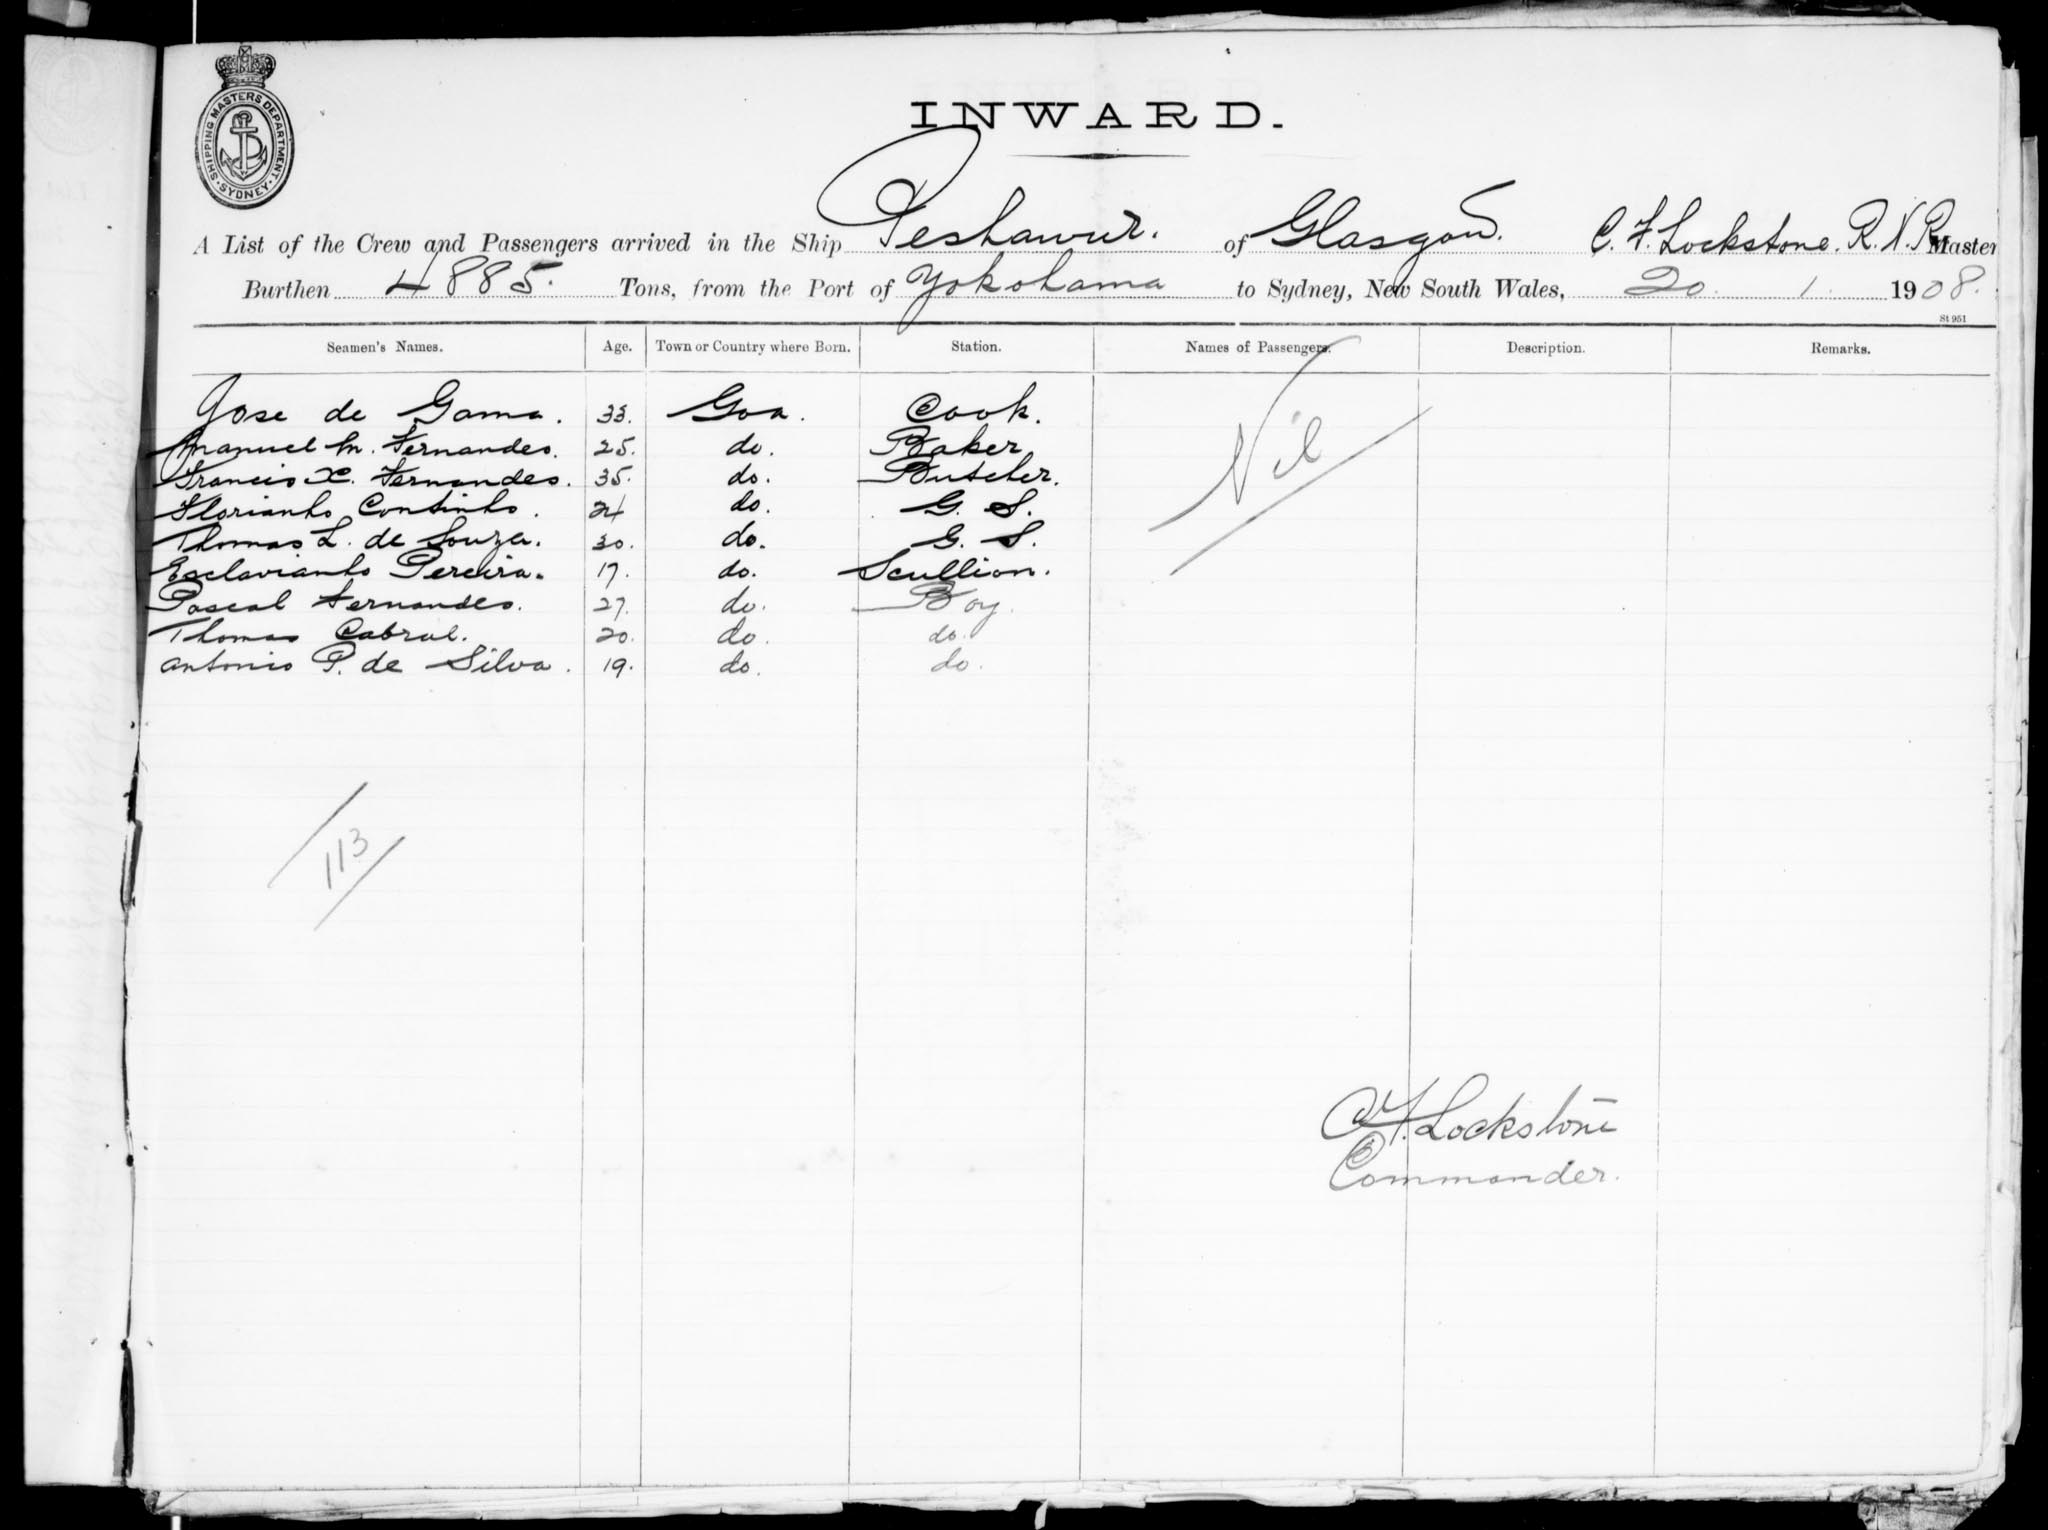 SHIPPING MASTERS DEPARTMENT
SYDNEY
INWARD.
A List of the Crew and Passengers arrived in the Ship Peshawur. of Glasgow. C. F. Lockstone. R.N.R. Master
Burthen 4885. Tons, from the Port of Yokohama to Sydney, New South Wales, 20. 1. 1908.
St 951
Seamen's Names. Age. Town or Country where Born. Station. Names of Passengers. Description. Remarks.
Jose de Gama. 33. Goa. Cook. Nil
Manuel M. Fernandes. 25. do. Baker
Francis X. Fernandes. 35. do. Butcher.
Florianho Continho. 24 do. G. S.
Thomas L. de Souza. 30. do. G. S.
Esclavianho Pereira. 17. do. Scullion.
Pascal Fernandes. 27. do. Boy.
Thomas Cabral. 20. do. do.
Antonio P. de Silva. 19. do. do.
113
C. F. Lockstone
Commander.